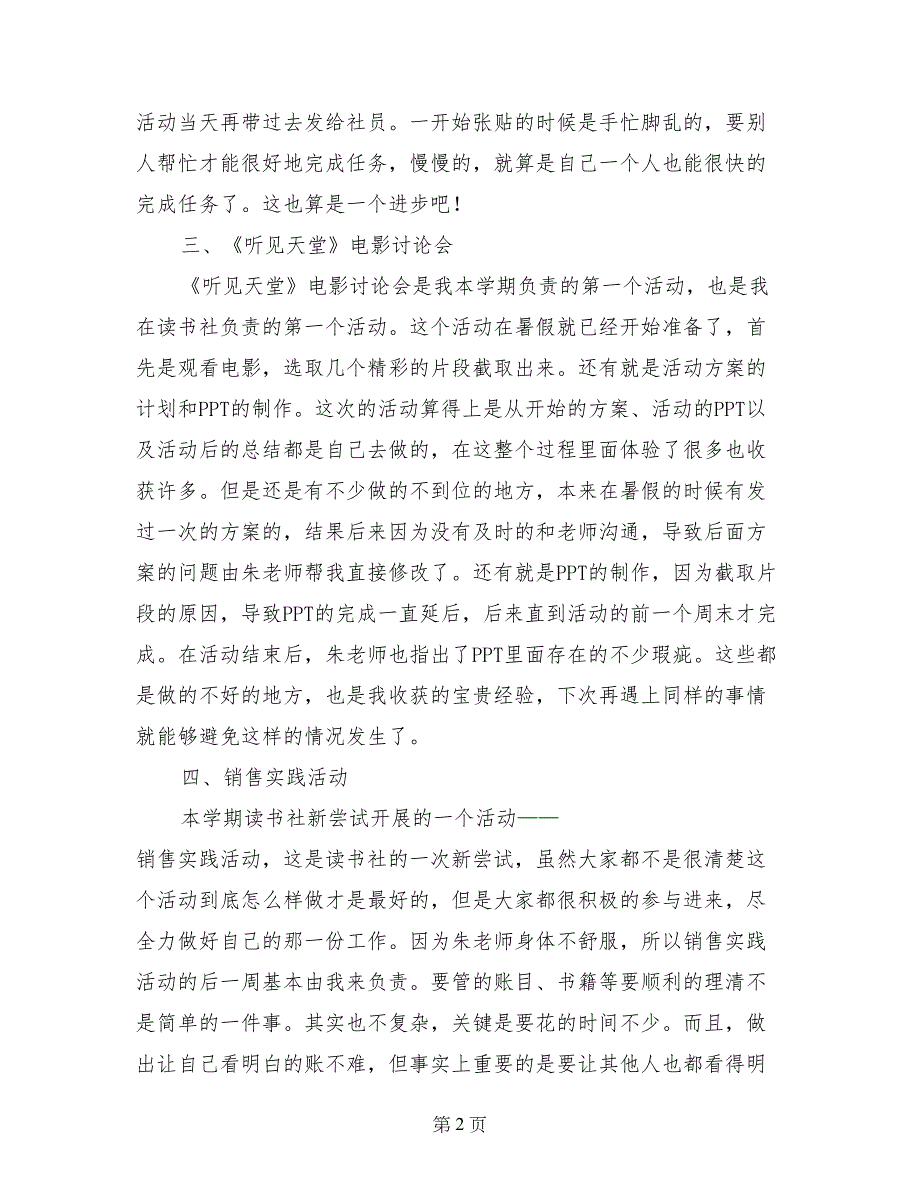 活动当天再带过去发给社员。一开始张贴的时候是手忙脚乱的，要别
人帮忙才能很好地完成任务，慢慢的，就算是自己一个人也能很快的
完成任务了。这也算是一个进步吧！
三、《听见天堂》电影讨论会
《听见天堂》电影讨论会是我本学期负责的第一个活动，也是我
在读书社负责的第一个活动。这个活动在暑假就已经开始准备了，首
先是观看电影，选取几个精彩的片段截取出来。还有就是活动方案的
计划和PPT的制作。这次的活动算得上是从开始的方案、活动的PPT以
及活动后的总结都是自己去做的，在这整个过程里面体验了很多也收
获许多。但是还是有不少做的不到位的地方，本来在暑假的时候有发
过一次的方案的，结果后来因为没有及时的和老师沟通，导致后面方
案的问题由朱老师帮我直接修改了。还有就是PPT的制作，因为截取片
段的原因，导致PPT的完成一直延后，后来直到活动的前一个周末才完
成。在活动结束后，朱老师也指出了PPT里面存在的不少瑕疵。这些都
是做的不好的地方，也是我收获的宝贵经验，下次再遇上同样的事情
就能够避免这样的情况发生了。
四、销售实践活动
本学期读书社新尝试开展的一个活动——
销售实践活动，这是读书社的一次新尝试，虽然大家都不是很清楚这
个活动到底怎么样做才是最好的，但是大家都很积极的参与进来，尽
全力做好自己的那一份工作。因为朱老师身体不舒服，所以销售实践
活动的后一周基本由我来负责。要管的账目、书籍等要顺利的理清不
是简单的一件事。其实也不复杂，关键是要花的时间不少。而且，做
出让自己看明白的账不难，但事实上重要的是要让其他人也都看得明
第 2 页